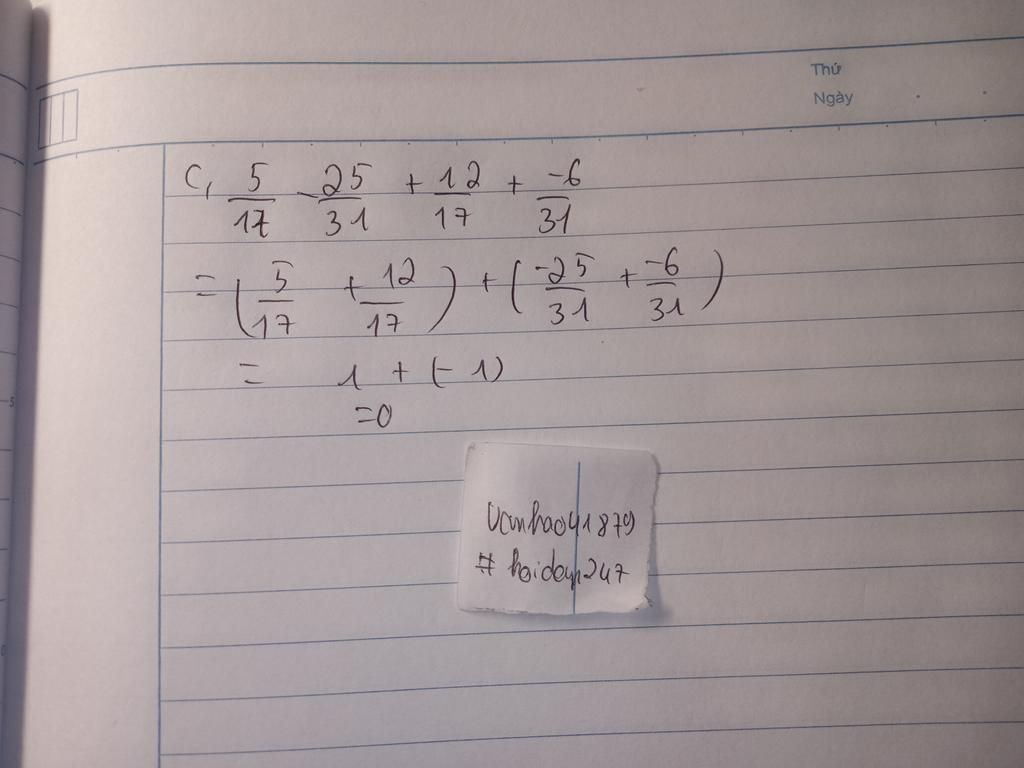 Thứ
Ngày
C, 5/17 - 25/31 + 12/17 + -6/31
= (5/17 + 12/17) + (-25/31 + -6/31)
= 1 + (-1)
=0
Vanhao41879
# hoidap247